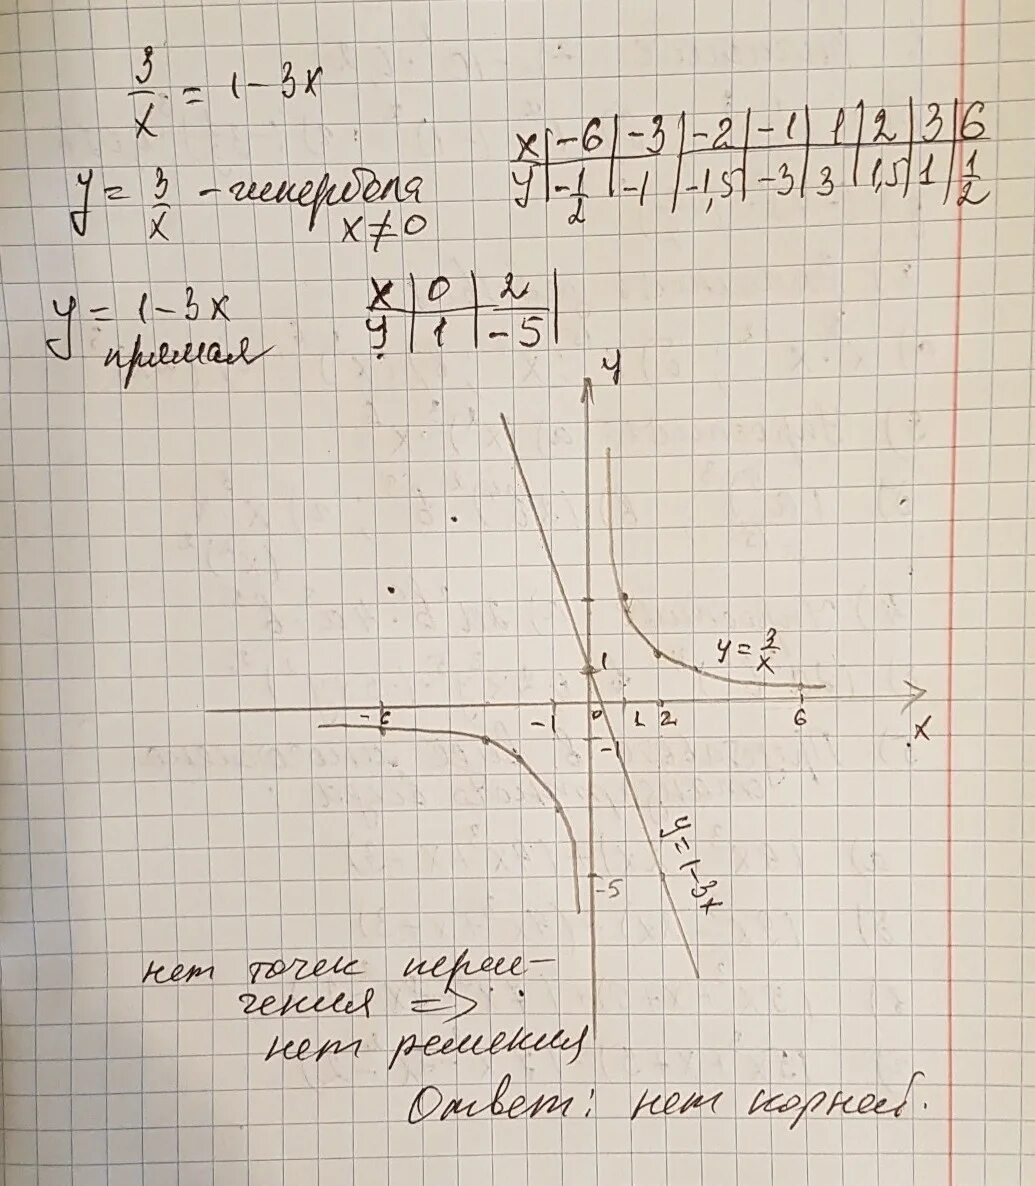 3/x = 1 - 3x
y = 3/x - гипербола
x ≠ 0
x | -6 | -3 | -2 | -1 | 1 | 2 | 3 | 6
y | -1/2 | -1 | -1,5 | -3 | 3 | 1,5 | 1 | 1/2
y = 1 - 3x
прямая
x | 0 | 2
y | 1 | -5
y
1
y = 3/x
-6 -1 0 1 2 6
x
-1
y = 1 - 3x
-5
нет точек пересе-
чения =>
нет решения
Ответ: нет корней.